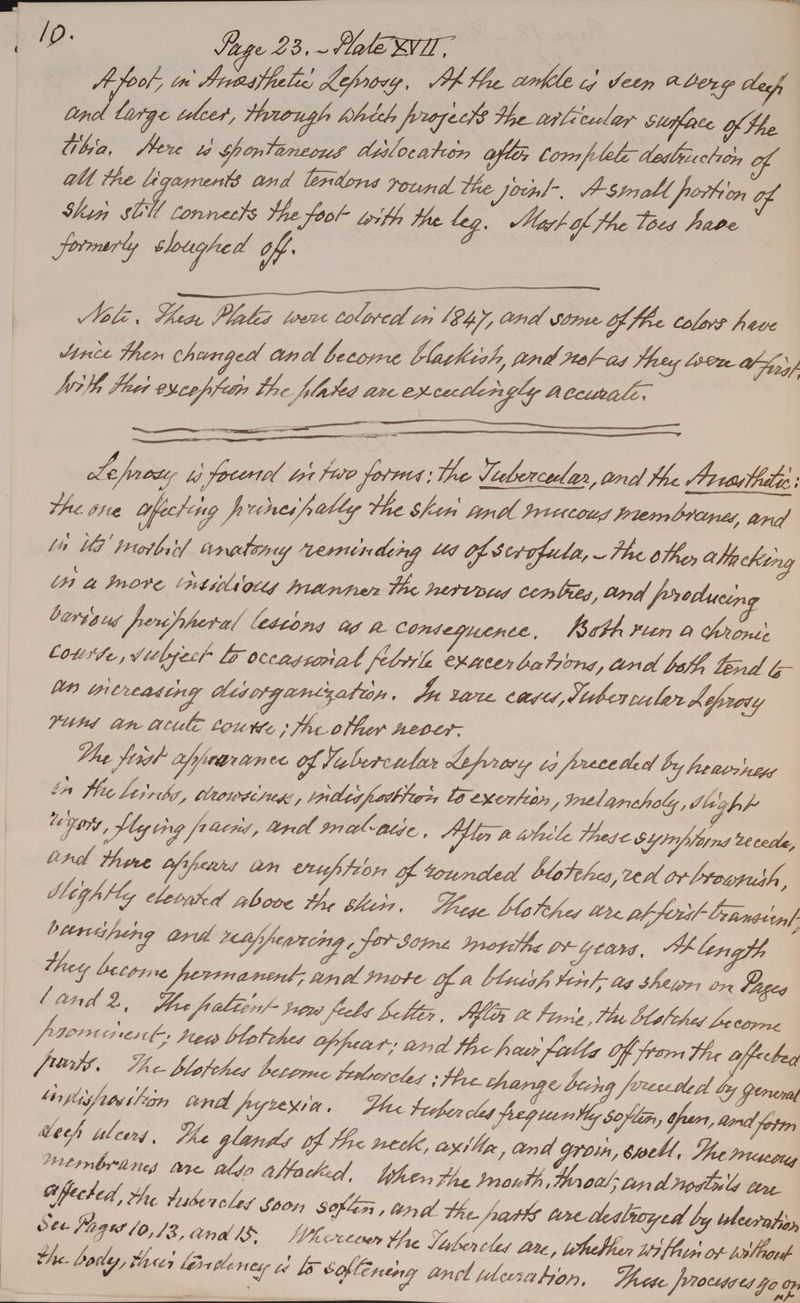 10.
Page 23. - Plate XVII.
A foot, in Anæsthetic Leprosy. At the ankle is seen a very deep
and large ulcer, through which projects the articular surface of the
tibia. Here is spontaneous dislocation after complete destruction of
all the ligaments and tendons round the joint. A small portion of
skin still connects the foot with the leg. Most of the toes have
formerly sloughed off.
Note. These Plates were colored in 1847, and some of the colors have
since then changed and become blackish, and not as they were at first.
With this exception the plates are exceedingly accurate.
Leprosy is found in two forms: the Tubercular, and the Anæsthetic:
the one affecting principally the skin and mucous membranes, and
in its' morbid anatomy reminding us of scrofula, - the other attacking
in a more insidious manner the nervous centres, and producing
various peripheral lesions as a consequence. Both run a chronic
course, subject to occasional febrile exacerbations, and both tend to
an increasing disorganization. In rare cases, Tubercular Leprosy
runs an acute course; the other never.
The first appearance of Tubercular Leprosy is preceded by heaviness
in the limbs, drowsiness, indisposition to exertion, melancholy, slight
rigors, flying pains, and mal-aise. After a while these symptoms recede,
and there appears an eruption of rounded blotches, red or brownish,
slightly elevated above the skin. These blotches are at first transient,
vanishing and reappearing, for some months or years. At length
they become permanent, and more of a bluish tint, as shewn on Pages
1 and 2. The patient now feels better. After a time, the blotches become
prominent; new blotches appear; and the hair falls off from the affected
parts. The blotches become tubercles: the change being preceded by general
indisposition and pyrexia. The tubercles frequently soften, open, and form
deep ulcers. The glands of the neck, axilla, and groin, swell. The mucous
membranes are also attacked. When the mouth, throat, and nostrils are
affected, the tubercles soon soften, and the parts are destroyed by ulceration
See Pages 10, 13, and 15. Wherever the Tubercles are, whether within or without
the body, their tendency is to softening and ulceration. These processes go on
at